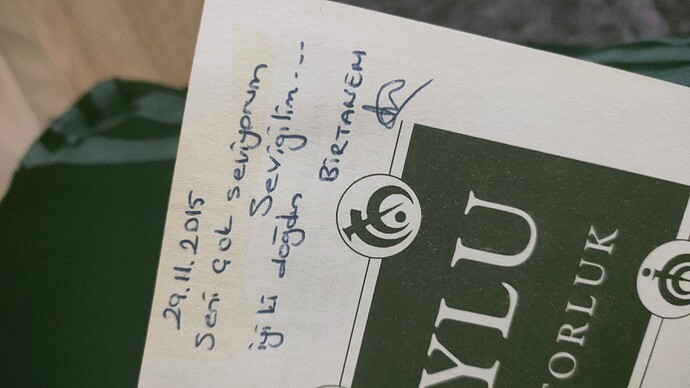 29.11.2015
Seni çok seviyorum
Sevigilim....
iyi ki doğdun
BİRTANEM
YLU
TORLUK